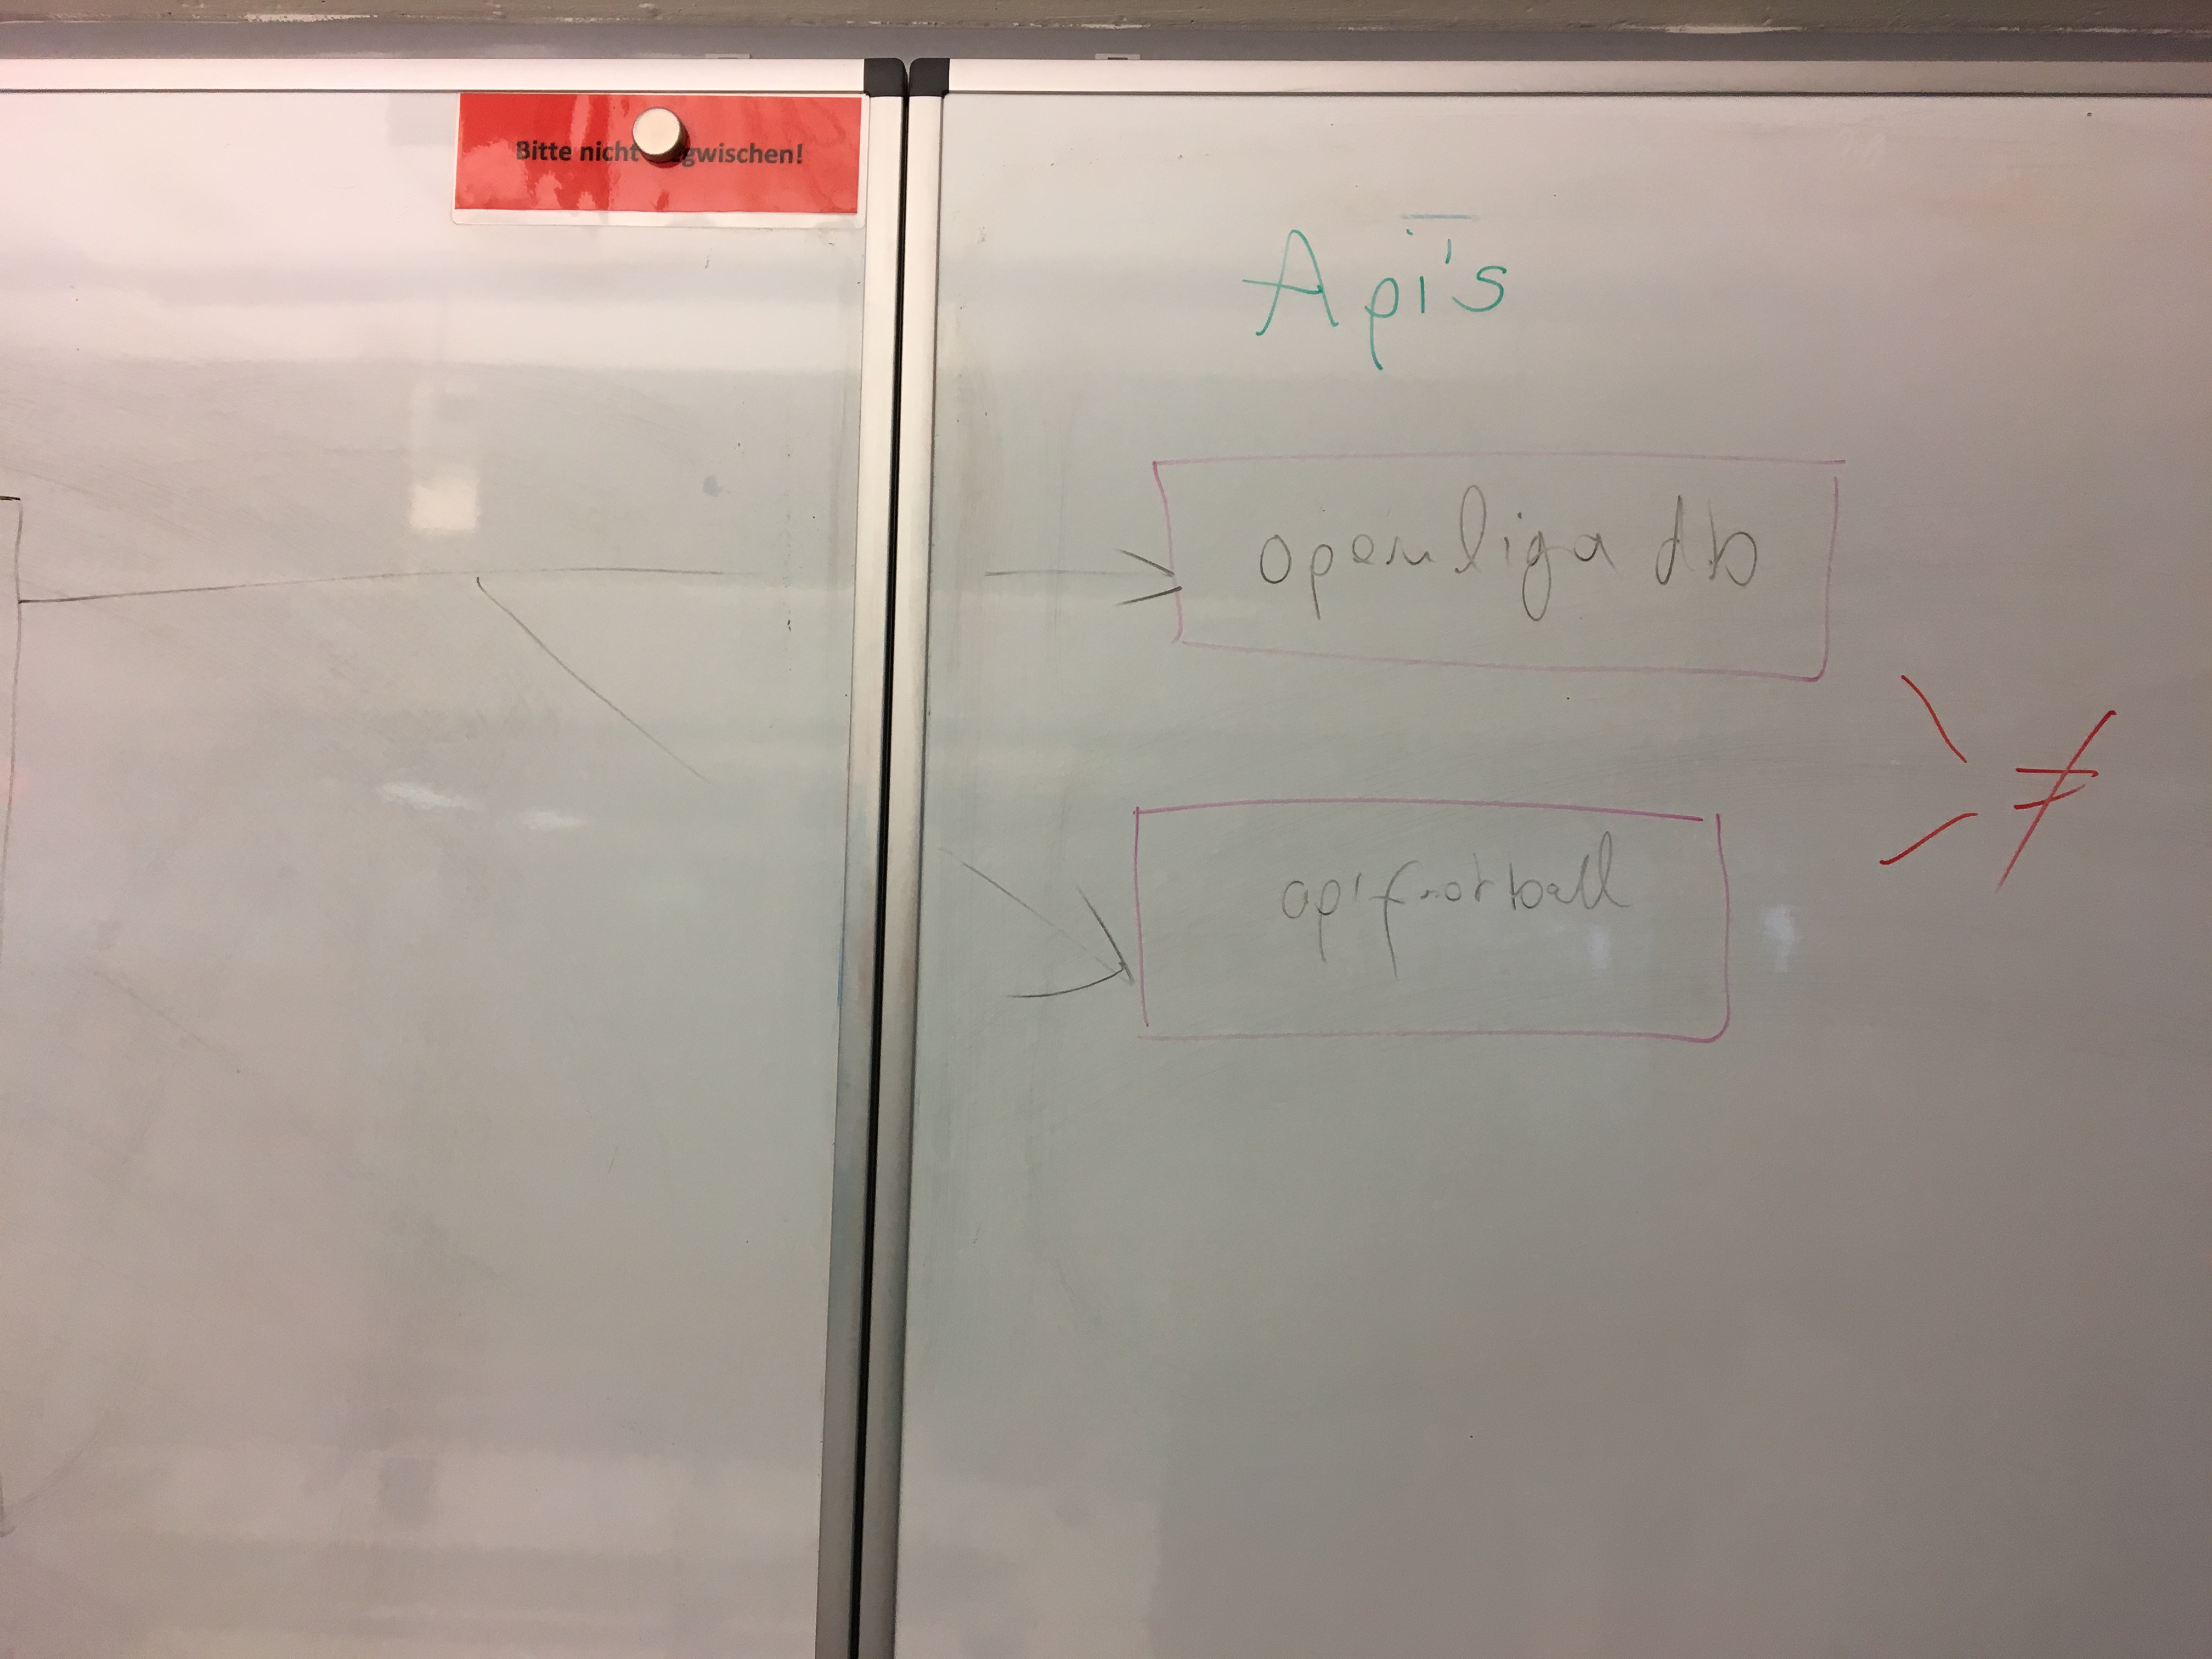 Bitte nicht wegwischen!
Api's
openliga db
apifootball
≠